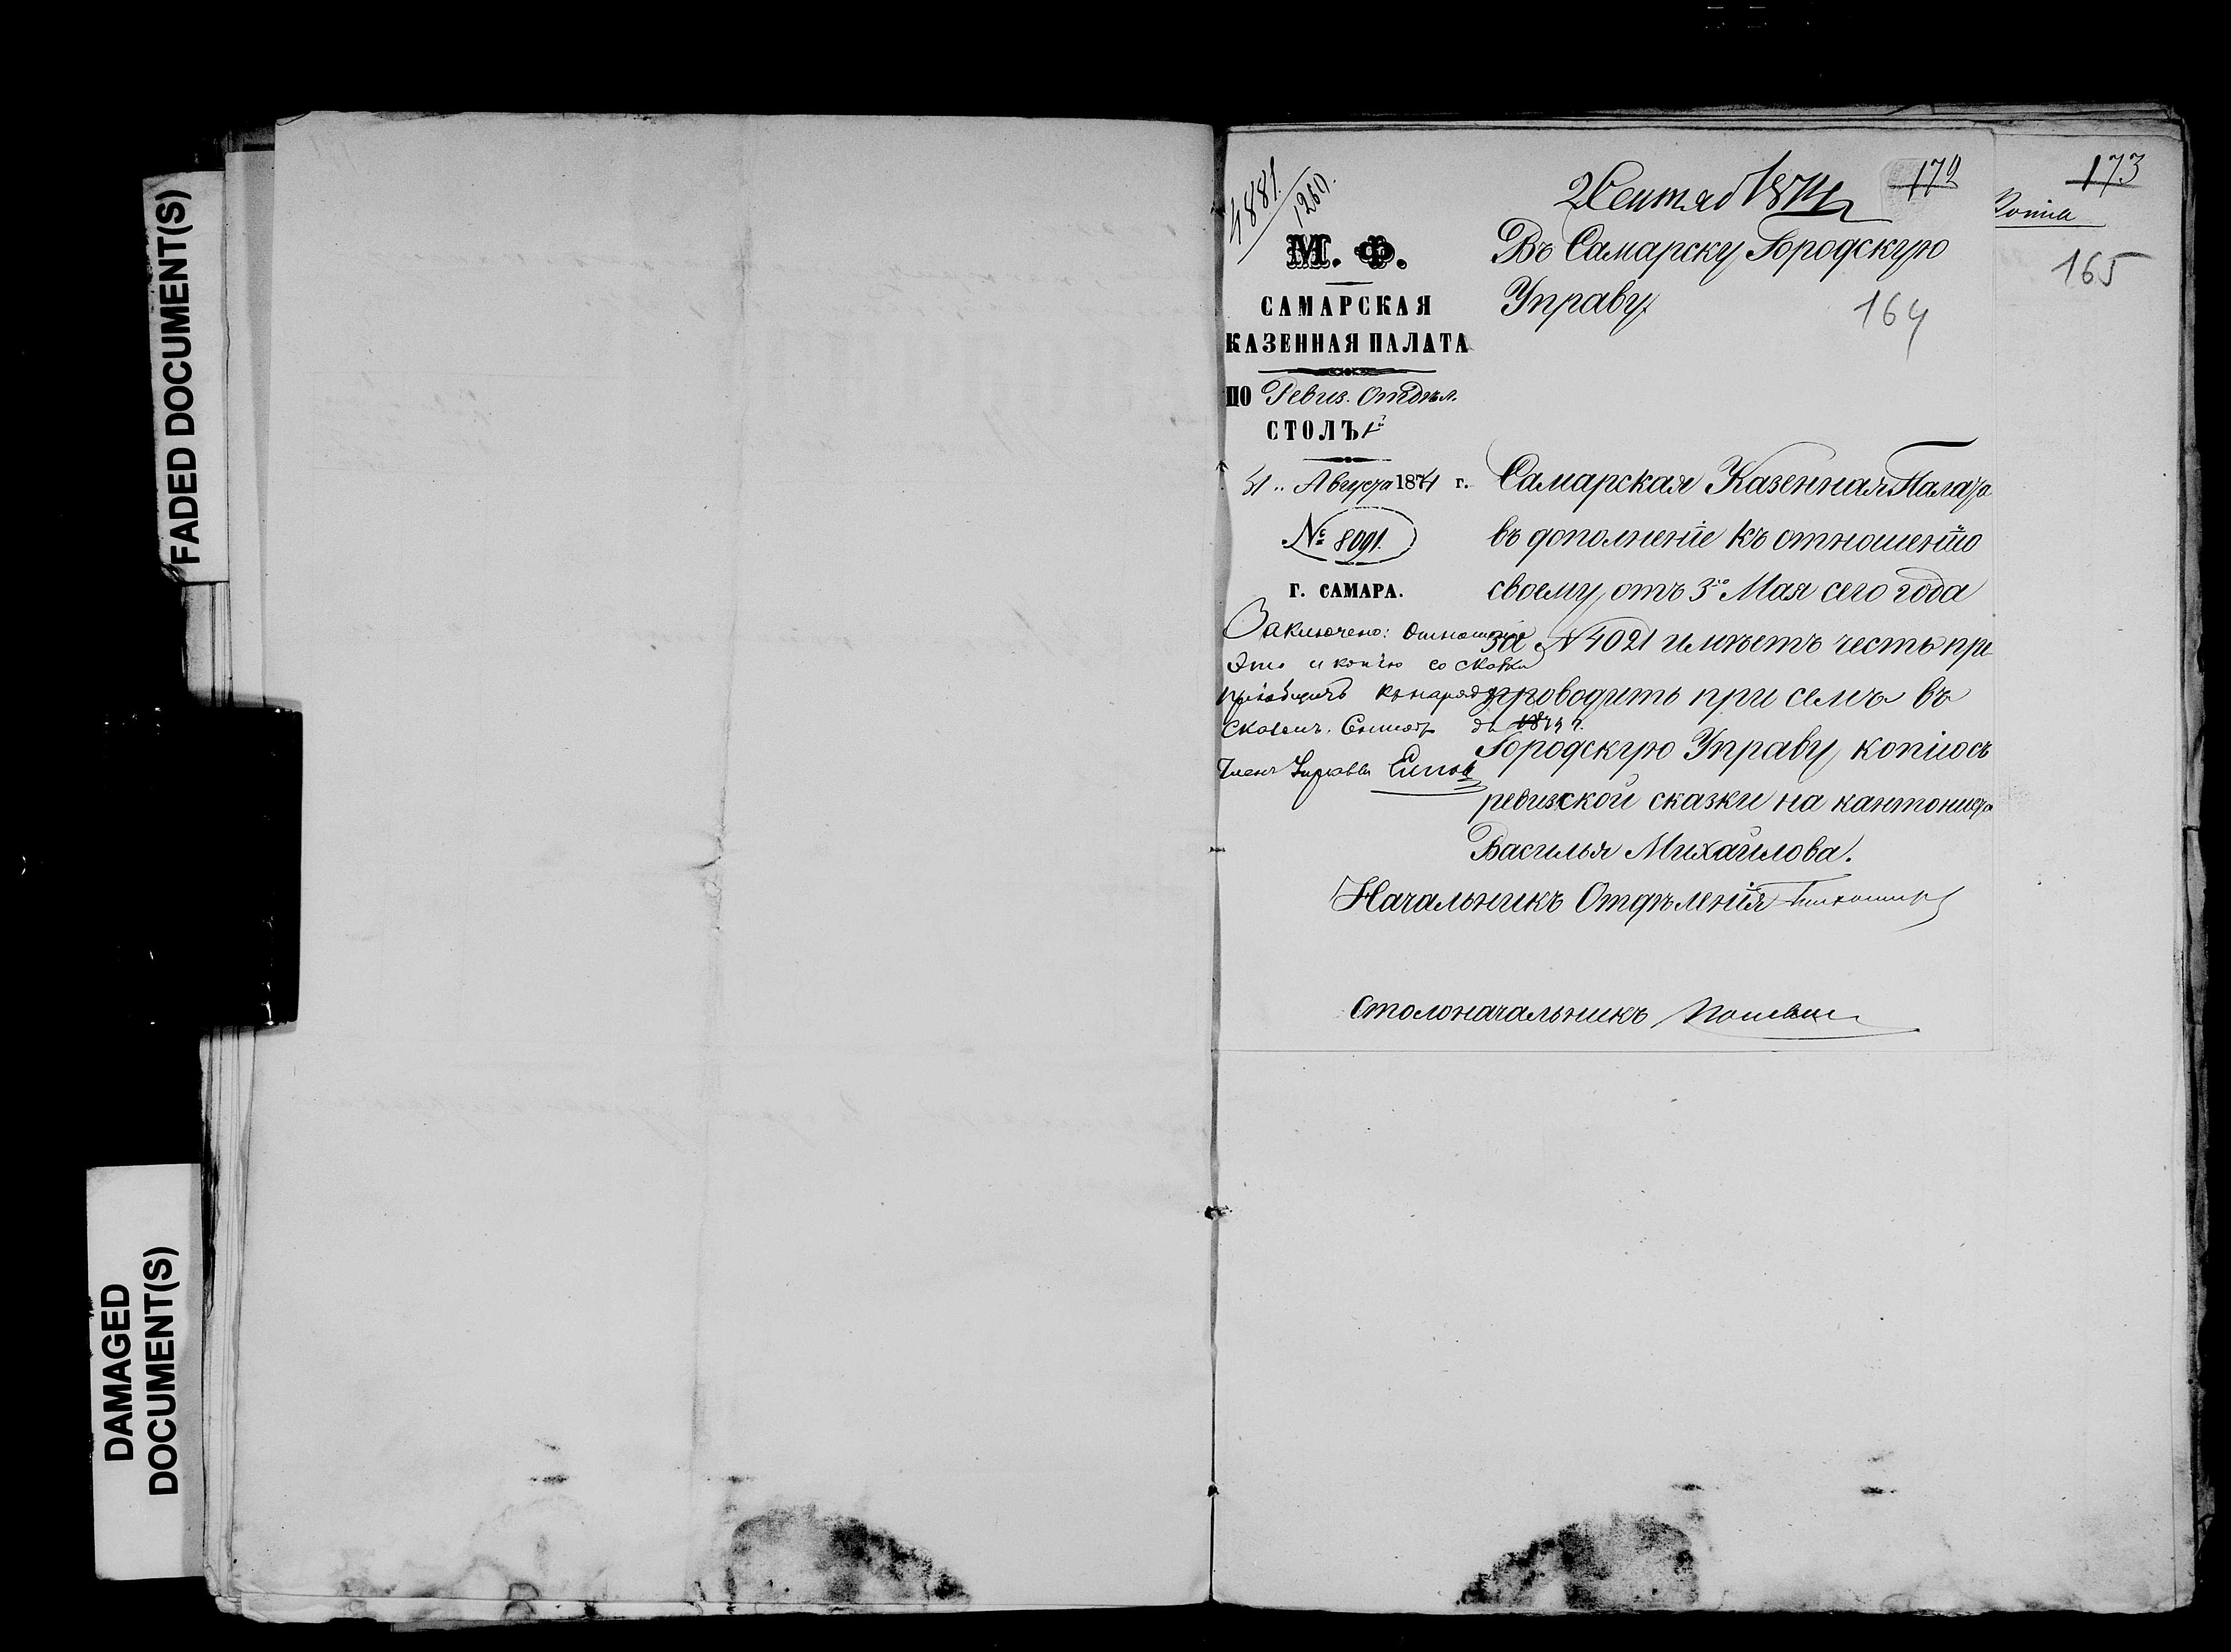 FADED DOCUMENT(S)
DAMAGED
DOCUMENT(S)
4881.
1260.
2 Сентяб 1874
172
173
Копия
165
164
М. Ф.
САМАРСКАЯ
КАЗЕННАЯ ПАЛАТА
ПО Ревиз. Отдѣл.
СТОЛЪ 1й
31 „ Августа 1874 г.
№ 8091.
Г. САМАРА.
Заключено: Отношеніе
это и копію со сказки
пріобщить къ наряду
сказокъ. Сентяб дн 1874 г.
Членъ Управы
Въ Самарску Городскую
Управу.
Самарская Казенная Палата
въ дополненіе къ отношенію
своему, отъ 3го Мая сего года
за № 4021 имѣетъ честь пре
проводить при семъ въ
Городскую Управу, копію съ
ревизской сказки на кантониста
Василья Михайлова.
Начальникъ Отдѣленія
Столоначальникъ